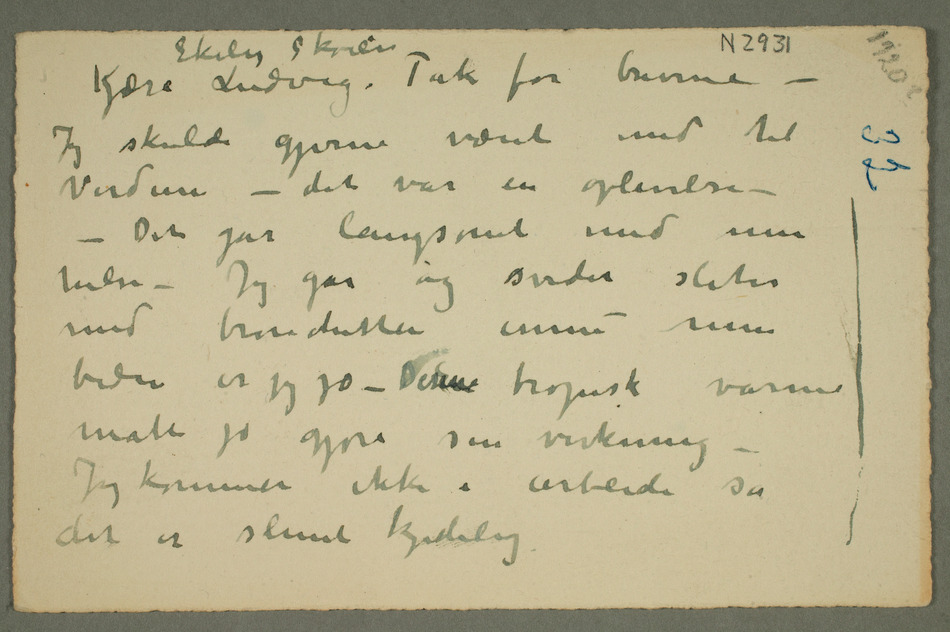 Ekely Skøien
N 2931
Kjære Ludvig. Tak for brevene –
Jeg skulde gjerne været med til
Verdun – det var en oplevelse –
– Det går langsomt med min
helse – Jeg går og svedet sliter
med bronchitten ennu men
bedre er jeg jo – Denne tropisk varme
måtte jo gjøre sin virkning –
Jeg kommer ikke i arbeide så
det er slemt kjedelig
32